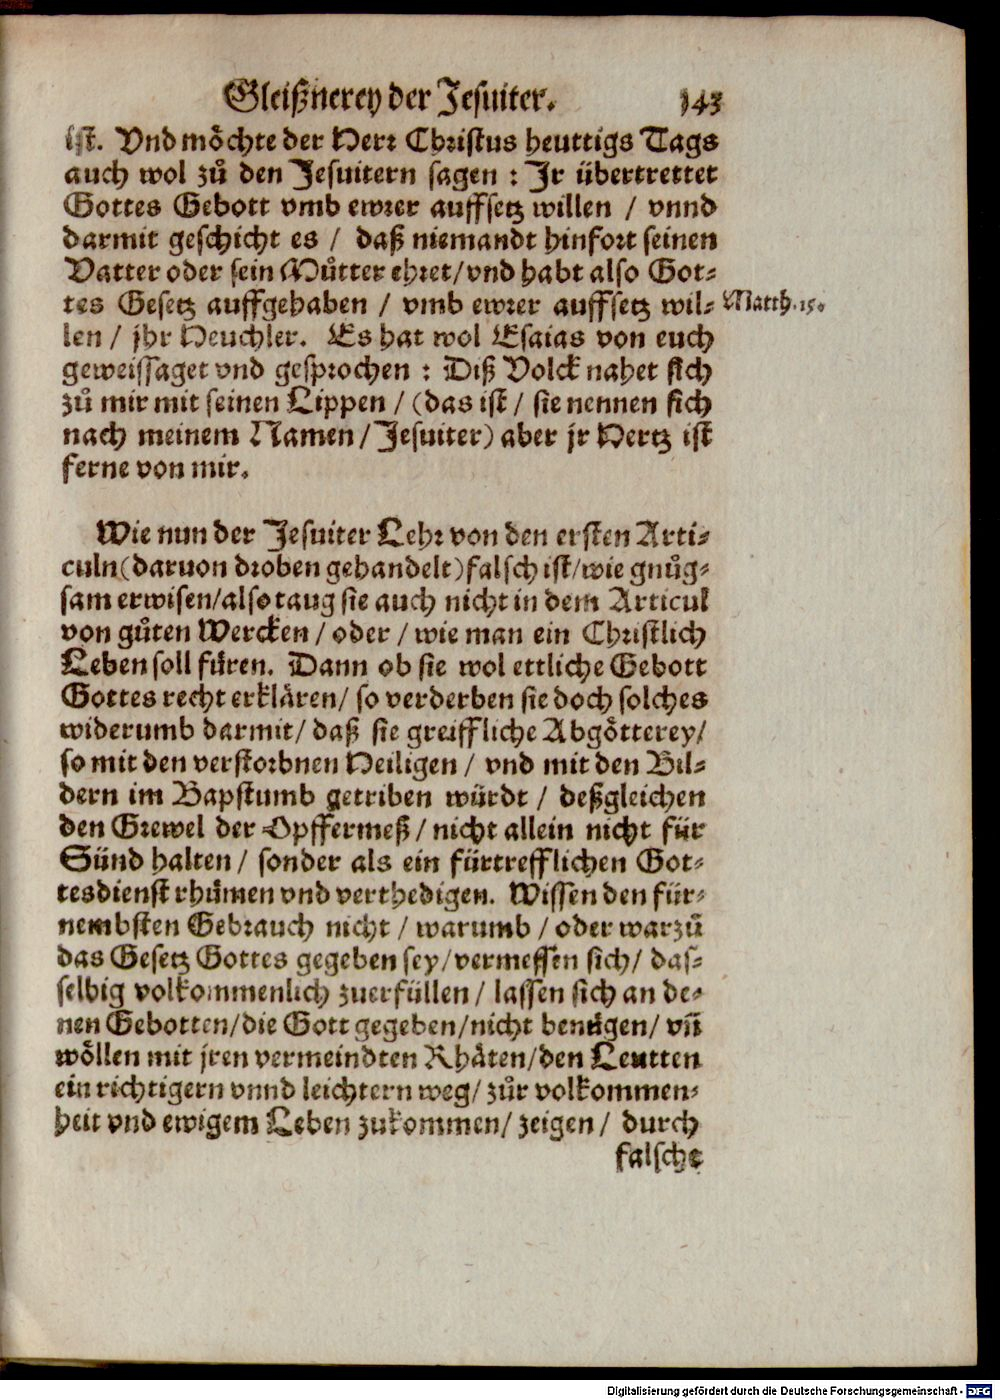 Gleißnerey der Jesuiter. 143
ist. Vnd möchte der Herr Christus heuttigs Tags
auch wol zů den Jesuitern sagen : Jr übertrettet
Gottes Gebott vmb ewrer auffsetz willen / vnnd
darmit geschicht es / daß niemandt hinfort seinen
Vatter oder sein Můtter ehret/vnd habt also Got-
tes Gesetz auffgehaben / vmb ewrer auffsetz wil- Matth.15.
len / jhr Heuchler. Es hat wol Esaias von euch
geweissaget vnd gesprochen : Diß Volck nahet sich
zů mir mit seinen Lippen / (das ist / sie nennen sich
nach meinem Namen/Jesuiter) aber jr Hertz ist
ferne von mir.
Wie nun der Jesuiter Lehr von den ersten Arti-
culn(daruon droben gehandelt)falsch ist/wie gnůg-
sam erwisen/also taug sie auch nicht in dem Articul
von gůten Wercken / oder / wie man ein Christlich
Leben soll füren. Dann ob sie wol ettliche Gebott
Gottes recht erklären/ so verderben sie doch solches
widerumb darmit/ daß sie greiffliche Abgötterey/
so mit den verstorbnen Heiligen / vnd mit den Bil-
dern im Bapstumb getriben würdt / deßgleichen
den Grewel der Opffermeß/ nicht allein nicht für
Sünd halten / sonder als ein fürtrefflichen Got-
tesdienst rhůmen vnd verthedigen. Wissen den für-
nembsten Gebrauch nicht / warumb / oder warzů
das Gesetz Gottes gegeben sey/vermessen sich/ das-
selbig volkommenlich zuerfüllen / lassen sich an de-
nen Gebotten/die Gott gegeben/nicht benügen/ vn̄
wöllen mit jren vermeindten Rhäten/den Leutten
ein richtigern vnnd leichtern weg/ zůr volkommen-
heit vnd ewigem Leben zukommen/ zeigen / durch
falsche
Digitalisierung gefördert durch die Deutsche Forschungsgemeinschaft - DFG